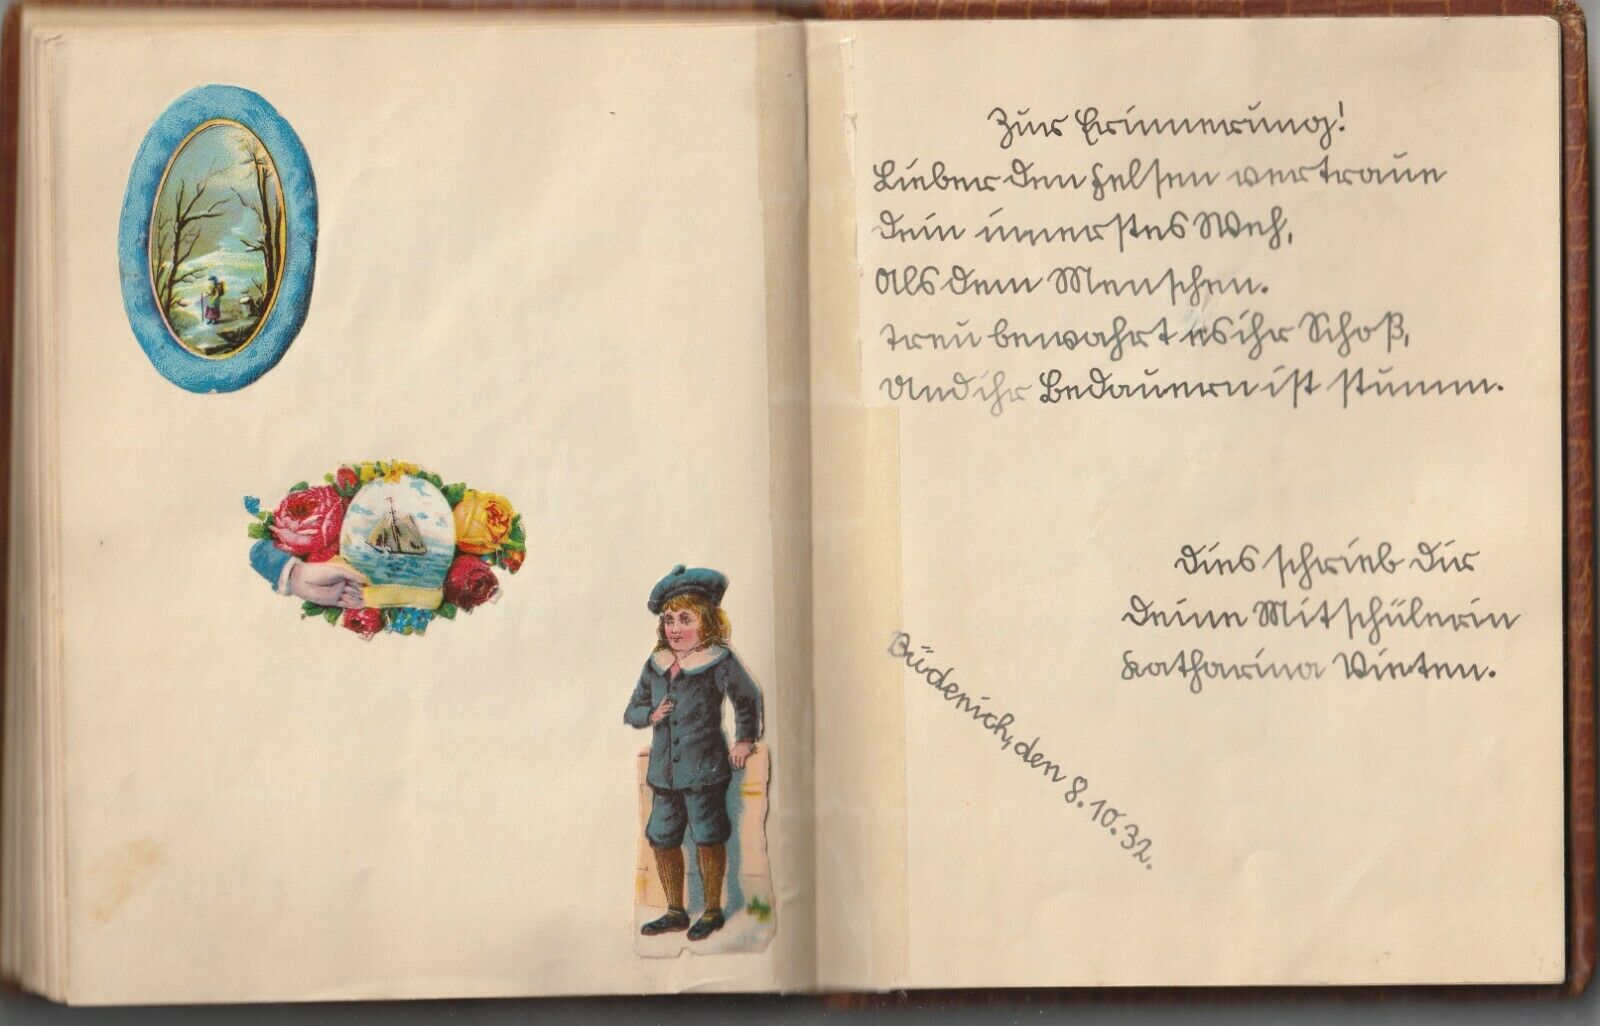 Zur Erinnerung!
Lieber den Felsen vertraue
Dein innerstes Weh,
Als dem Menschen.
Treu bewahrt es ihr Schoß,
Und ihr Bedauern ist stumm.
Dies schrieb Dir
Deine Mitschülerin
Katharina Vieten.
Büderich, den 8.10.32.